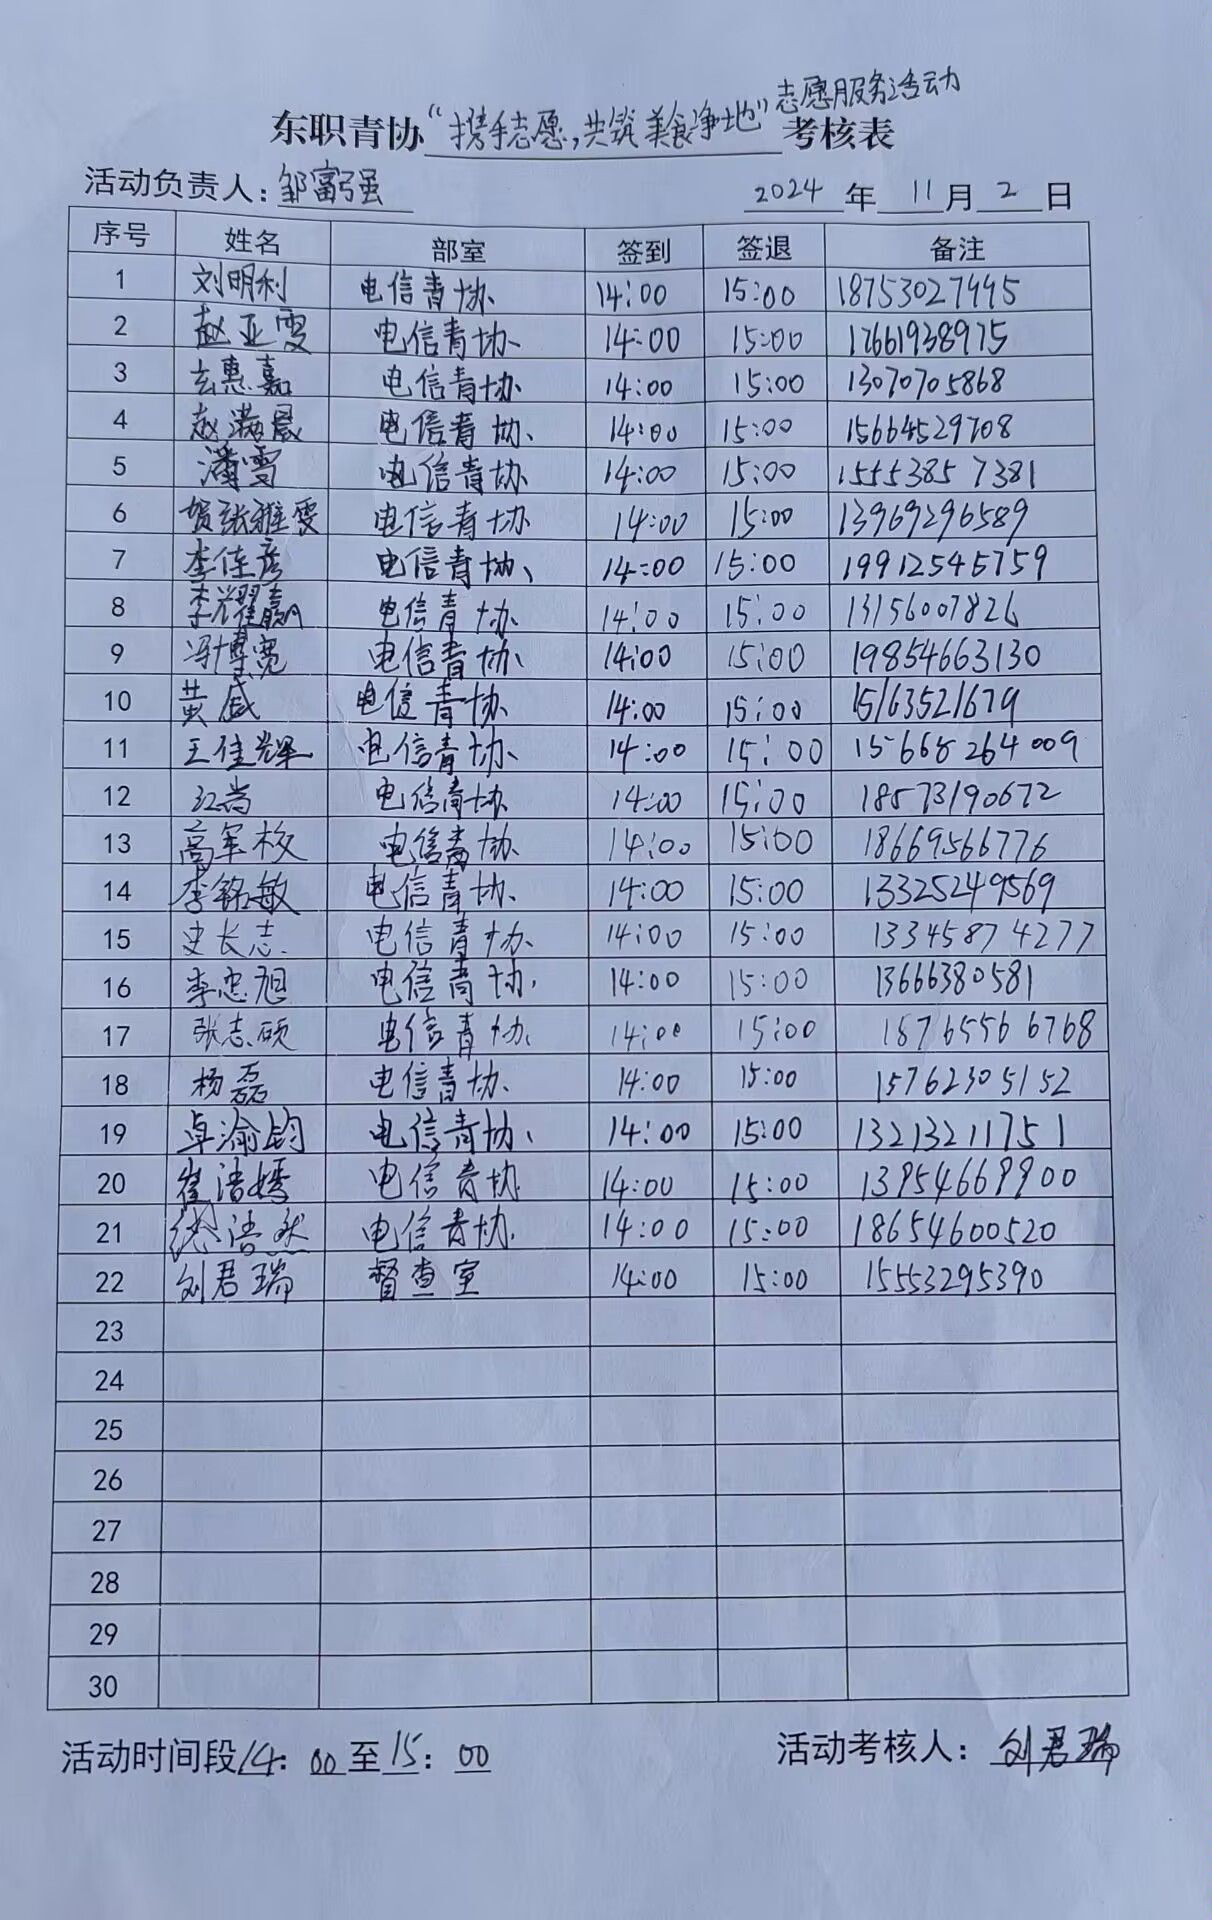 志愿服务活动
东职青协“携手志愿,共筑美食净地”考核表
活动负责人:邹富强 2024 年 11 月 2 日
序号 姓名 部室 签到 签退 备注
1 刘明利 电信青协 14:00 15:00 18753027995
2 赵亚雯 电信青协 14:00 15:00 17661938975
3 玄惠嘉 电信青协 14:00 15:00 13070705868
4 赵满晟 电信青协 14:00 15:00 15664529708
5 潘雪 电信青协 14:00 15:00 15553857381
6 贺张雅雯 电信青协 14:00 15:00 13969296589
7 李佳彦 电信青协 14:00 15:00 19912545759
8 李耀赢 电信青协 14:00 15:00 13156007826
9 冯博宽 电信青协 14:00 15:00 19854663130
10 黄威 电信青协 14:00 15:00 15163521679
11 王佳辉 电信青协 14:00 15:00 15668264009
12 江尚 电信青协 14:00 15:00 18573190672
13 高军校 电信青协 14:00 15:00 18669566776
14 李铭敏 电信青协 14:00 15:00 13325249569
15 史长志 电信青协 14:00 15:00 13345874277
16 李忠旭 电信青协 14:00 15:00 13666380581
17 张志硕 电信青协 14:00 15:00 18765566768
18 杨磊 电信青协 14:00 15:00 15762305152
19 卓渝钧 电信青协 14:00 15:00 13213211751
20 崔浩嫣 电信青协 14:00 15:00 13954669900
21 浩然 电信青协 14:00 15:00 18654600520
22 刘君瑞 督查室 14:00 15:00 15553295390
23
24
25
26
27
28
29
30
活动时间段14:00至15:00 活动考核人:刘君瑞